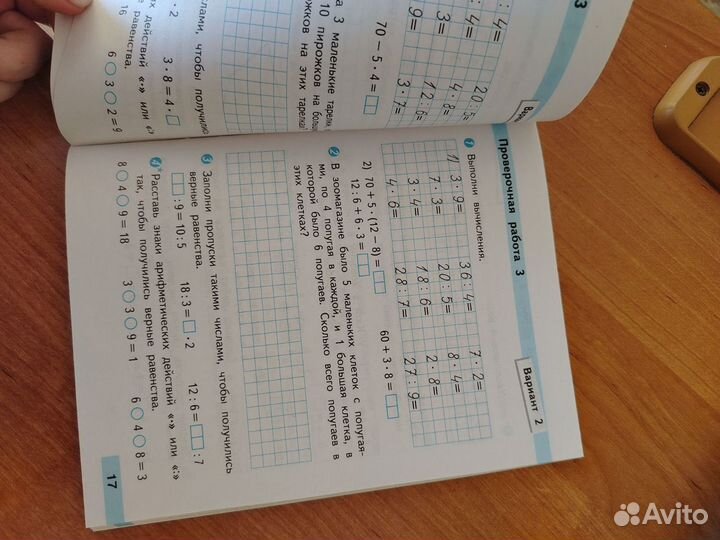 3
: 4 =
: 4 =
3 =
9 =
20 : 5
4 · 8 =
12 : 6 =
3 · 7 =
70 − 5 · 4 = □
3 маленькие тарелк
10 пирожков на больш
ожков на этих тарелка
лами, чтобы получили
· 2
3 · 8 = 4 · □
действий «·» или
равенства.
6 ○ 3 ○ 2 = 9
16
Проверочная работа 3
Вариант 2
1 Выполни вычисления.
1) 3 · 9 = 36 : 4 = 7 · 2 =
7 · 3 = 20 : 5 = 8 · 4 =
3 · 4 = 18 : 6 = 2 · 8 =
4 · 6 = 28 : 7 = 27 : 9 =
2) 70 + 5 · (12 − 8) = □ 60 + 3 · 8 = □
12 : 6 + 6 · 3 = □
2 В зоомагазине было 5 маленьких клеток с попугая-
ми, по 4 попугая в каждой, и 1 большая клетка, в
которой было 6 попугаев. Сколько всего попугаев в
этих клетках?
3 Заполни пропуски такими числами, чтобы получились
верные равенства.
□ : 9 = 10 : 5 18 : 3 = □ · 2 12 : 6 = □ : 7
4* Расставь знаки арифметических действий «·» или «:»
так, чтобы получились верные равенства.
8 ○ 4 ○ 9 = 18 3 ○ 3 ○ 9 = 1 6 ○ 4 ○ 8 = 3
17
Avito